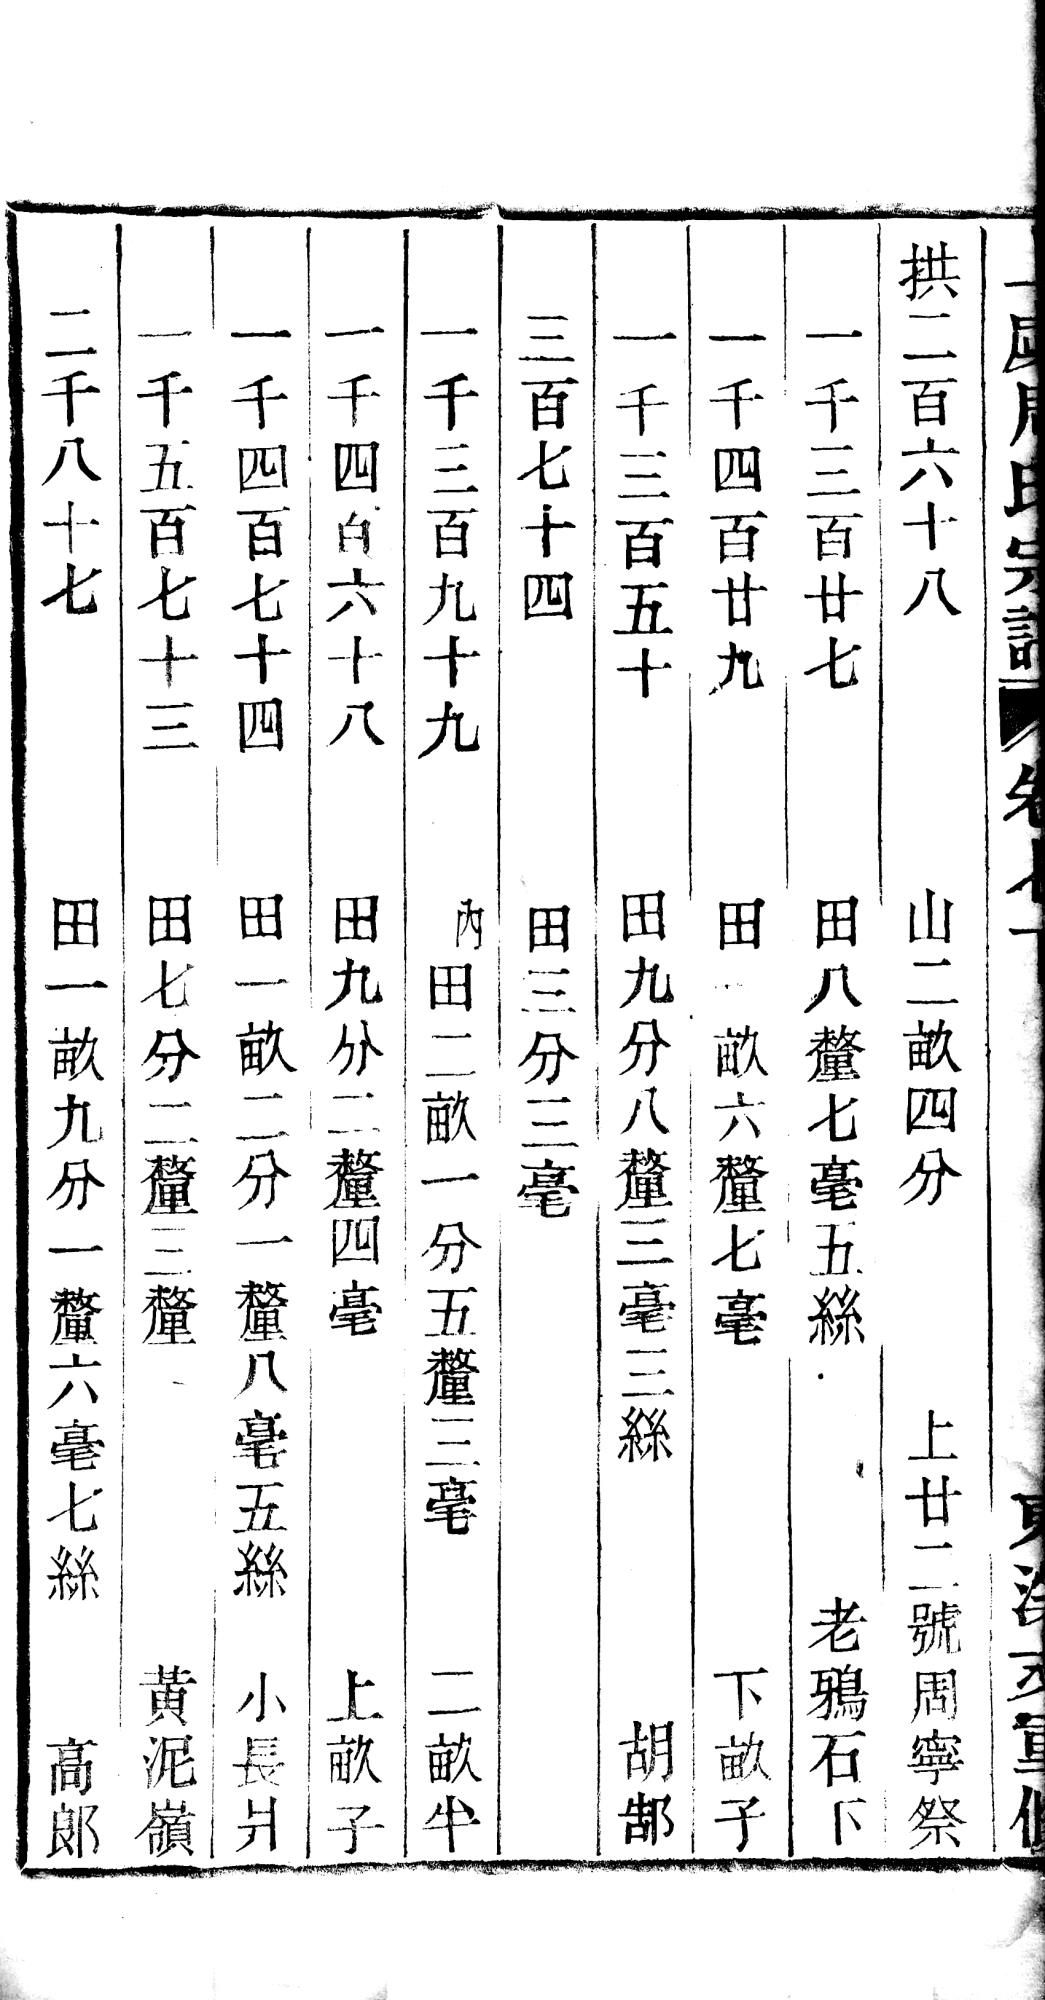 周氏宗譜 卷七 重修
拱二百六十八 山二畝四分 上廿二號周寧祭
一千三百廿七 田八釐七毫五絲 老鴉石下
一千四百廿九 田一畝六釐七毫 下畝子
一千三百五十 田九分八釐三毫三絲 胡郜
三百七十四 田三分三毫
一千三百九十九 內田二畝一分五釐三毫 二畝半
一千四百六十八 田九分二釐四毫 上畝子
一千四百七十四 田一畝二分一釐八毫五絲 小長爿
一千五百七十三 田七分二釐三釐 黃泥嶺
二千八十七 田一畝九分一釐六毫七絲 高郎